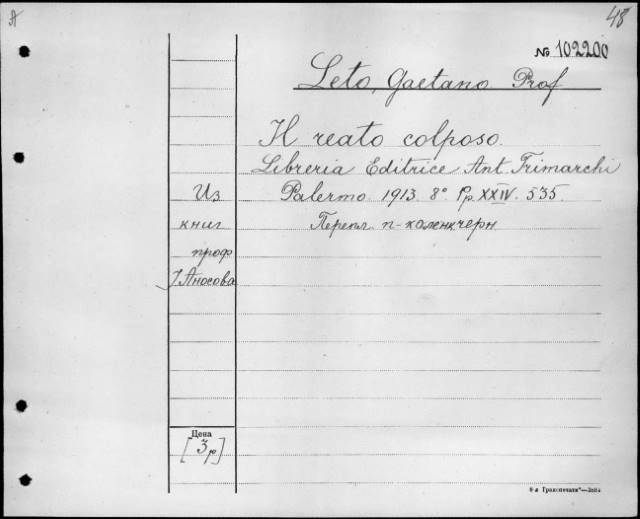 A
48
№ 102200
Leto, Gaetano Prof
Il reato colposo.
Libreria Editrice Ant. Trimarchi
Из
Palermo 1913. 8° Pp. XXIV. 535.
книг
Перепл. п-коленк. черн
проф
Аносова
Цена
[3 р]